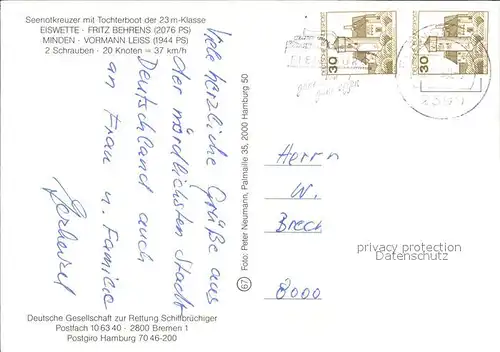 Seenotkreuzer mit Tochterboot der 23 m-Klasse
EISWETTE · FRITZ BEHRENS (2076 PS)
MINDEN · VORMANN LEISS (1944 PS)
2 Schrauben · 20 Knoten = 37 km/h
Viele herzliche Grüße aus
der nördlichsten Stadt
Deutschland auch
an Frau u. Familie
Foto: Peter Neumann, Palmaille 35, 2000 Hamburg 50
67
30
30
Herrn
W.
Brech
8000
privacy protection
Datenschutz
Deutsche Gesellschaft zur Rettung Schiffbrüchiger
Postfach 10 63 40 · 2800 Bremen 1
Postgiro Hamburg 70 46-200